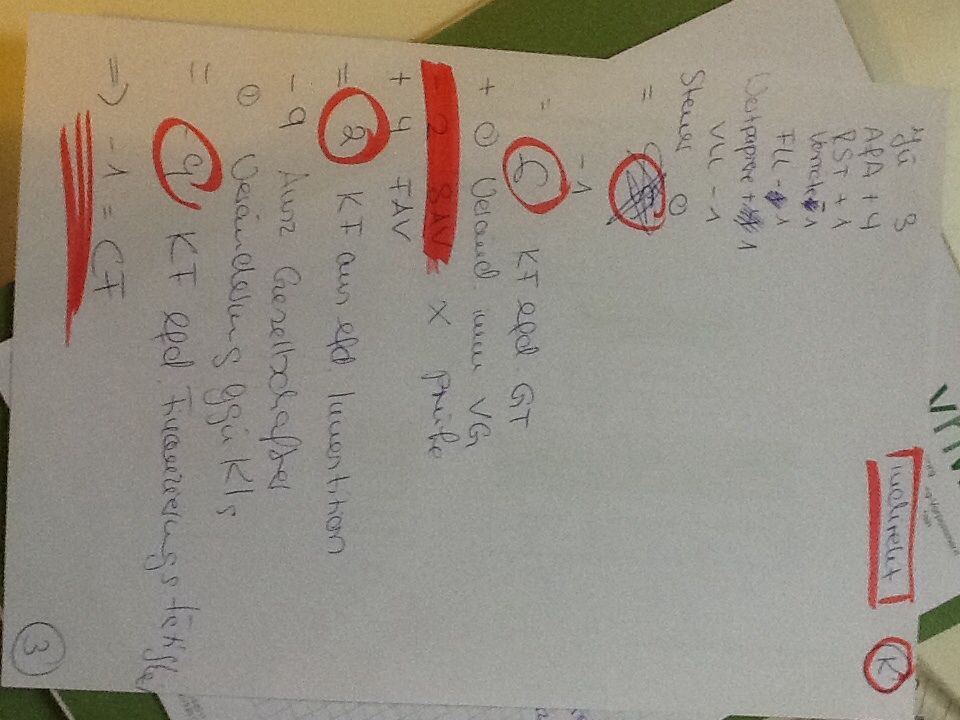 indirekt K
JÜ 3
AfA +4
RST +1
Vorräte -1
FLL -1
Wertpapiere +1
VLL -1
Steuer 0
=
-1
= 6 KF lfd. GT
+ 0 Veränd. imm VG
- 2 SAV x prüfe
+ 4 FAV
= 2 KF aus lfd. Investition
- 9 Ausz Gesellschafter
0 Veränderung ggü KIs
= 9 KF lfd. Finanzierungstätigkei
=> -1 = CF
3